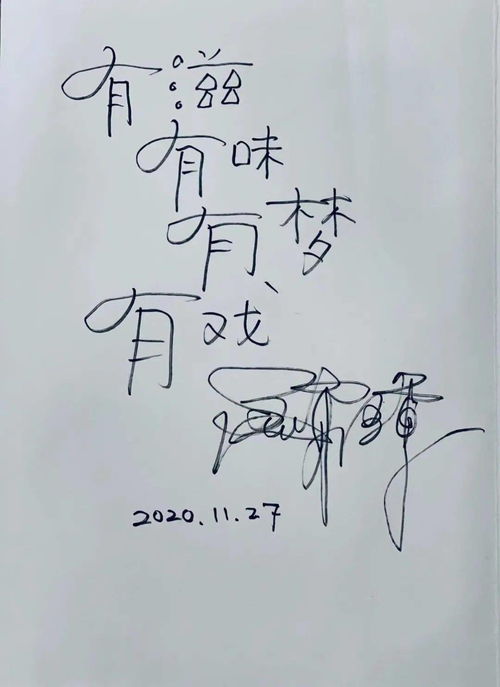 有滋
有味
有梦
有戏
2020.11.27